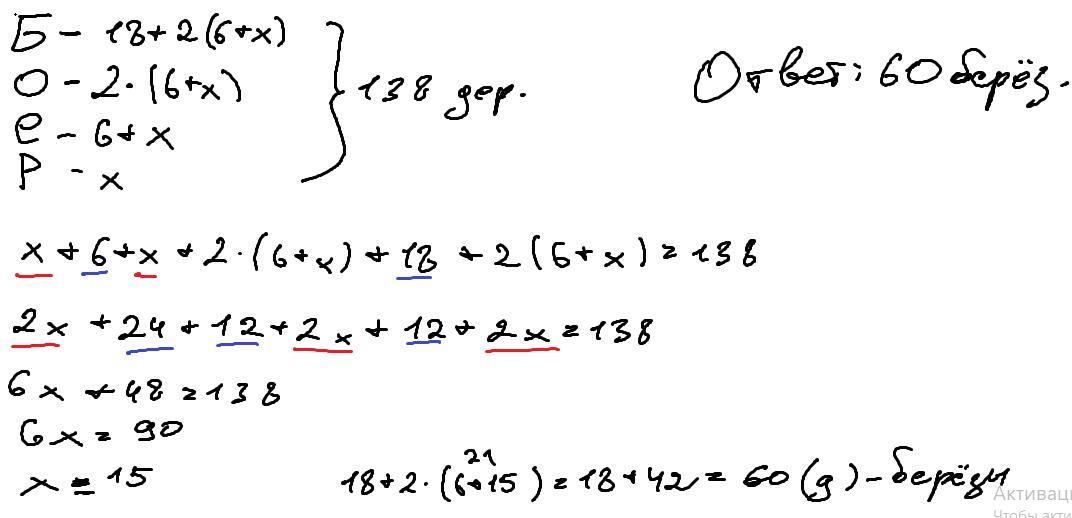 Б - 18+2(6+x)
О - 2·(6+x)
Е - 6+x
Р - x
138 дер.
Ответ: 60 берёз.
x + 6 + x + 2·(6+x) + 18 + 2(6+x) = 138
2x + 24 + 12 + 2x + 12 + 2x = 138
6x + 48 = 138
6x = 90
x = 15
21
18+2·(6+15) = 18+42 = 60 (д) - берёзы
Активаци
Чтобы акти